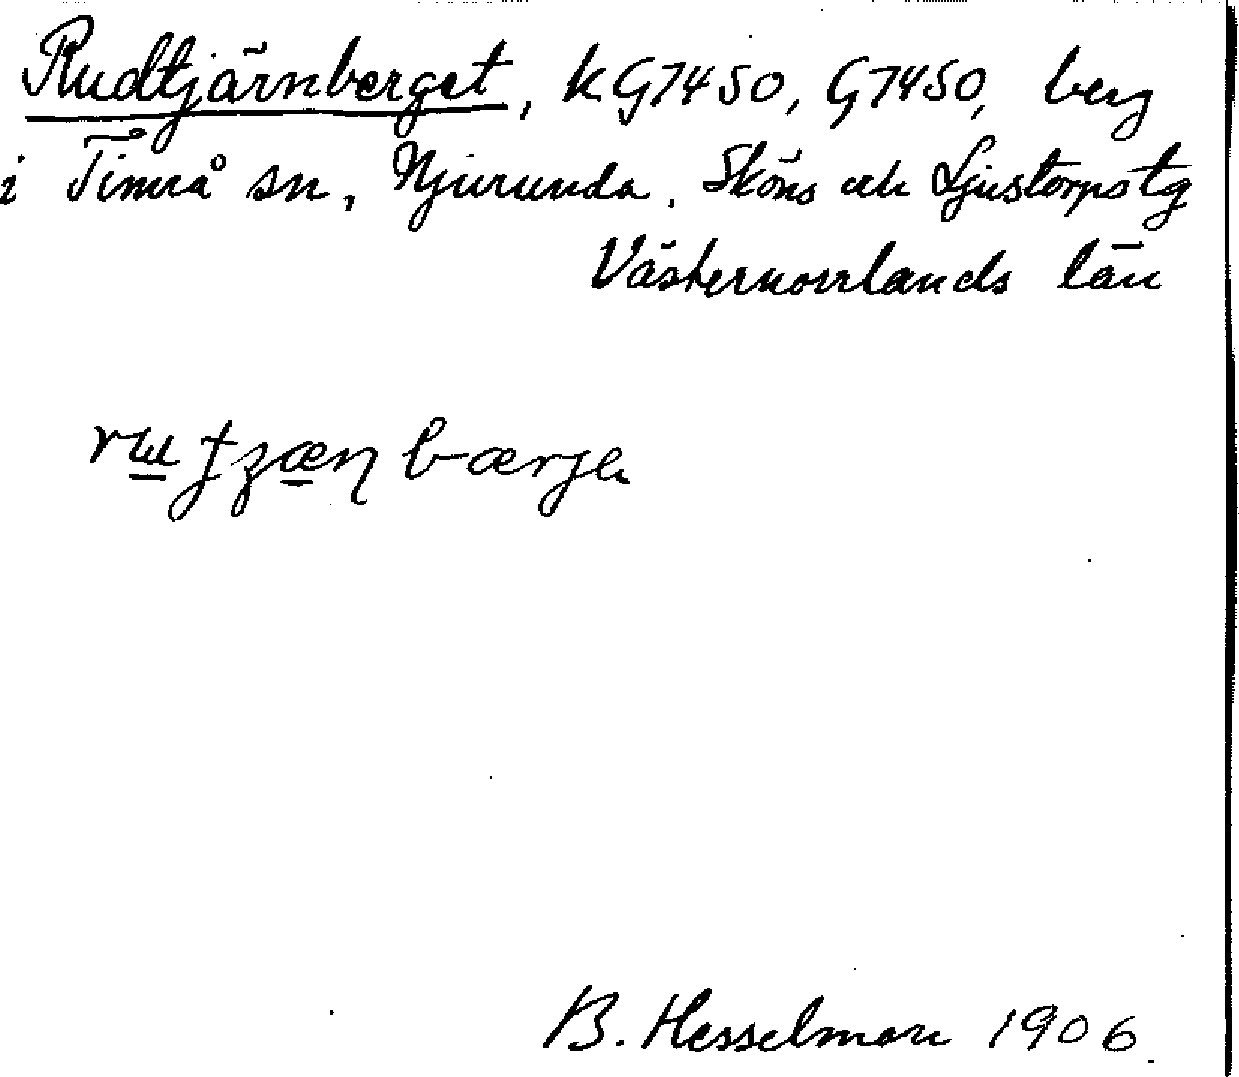 Rudtjärnberget, kG7450, G7450, berg
i Timrå sn, Njurunda, Sköns och Ljustorps tg
Västernorrlands län
B. Hesselman 1906